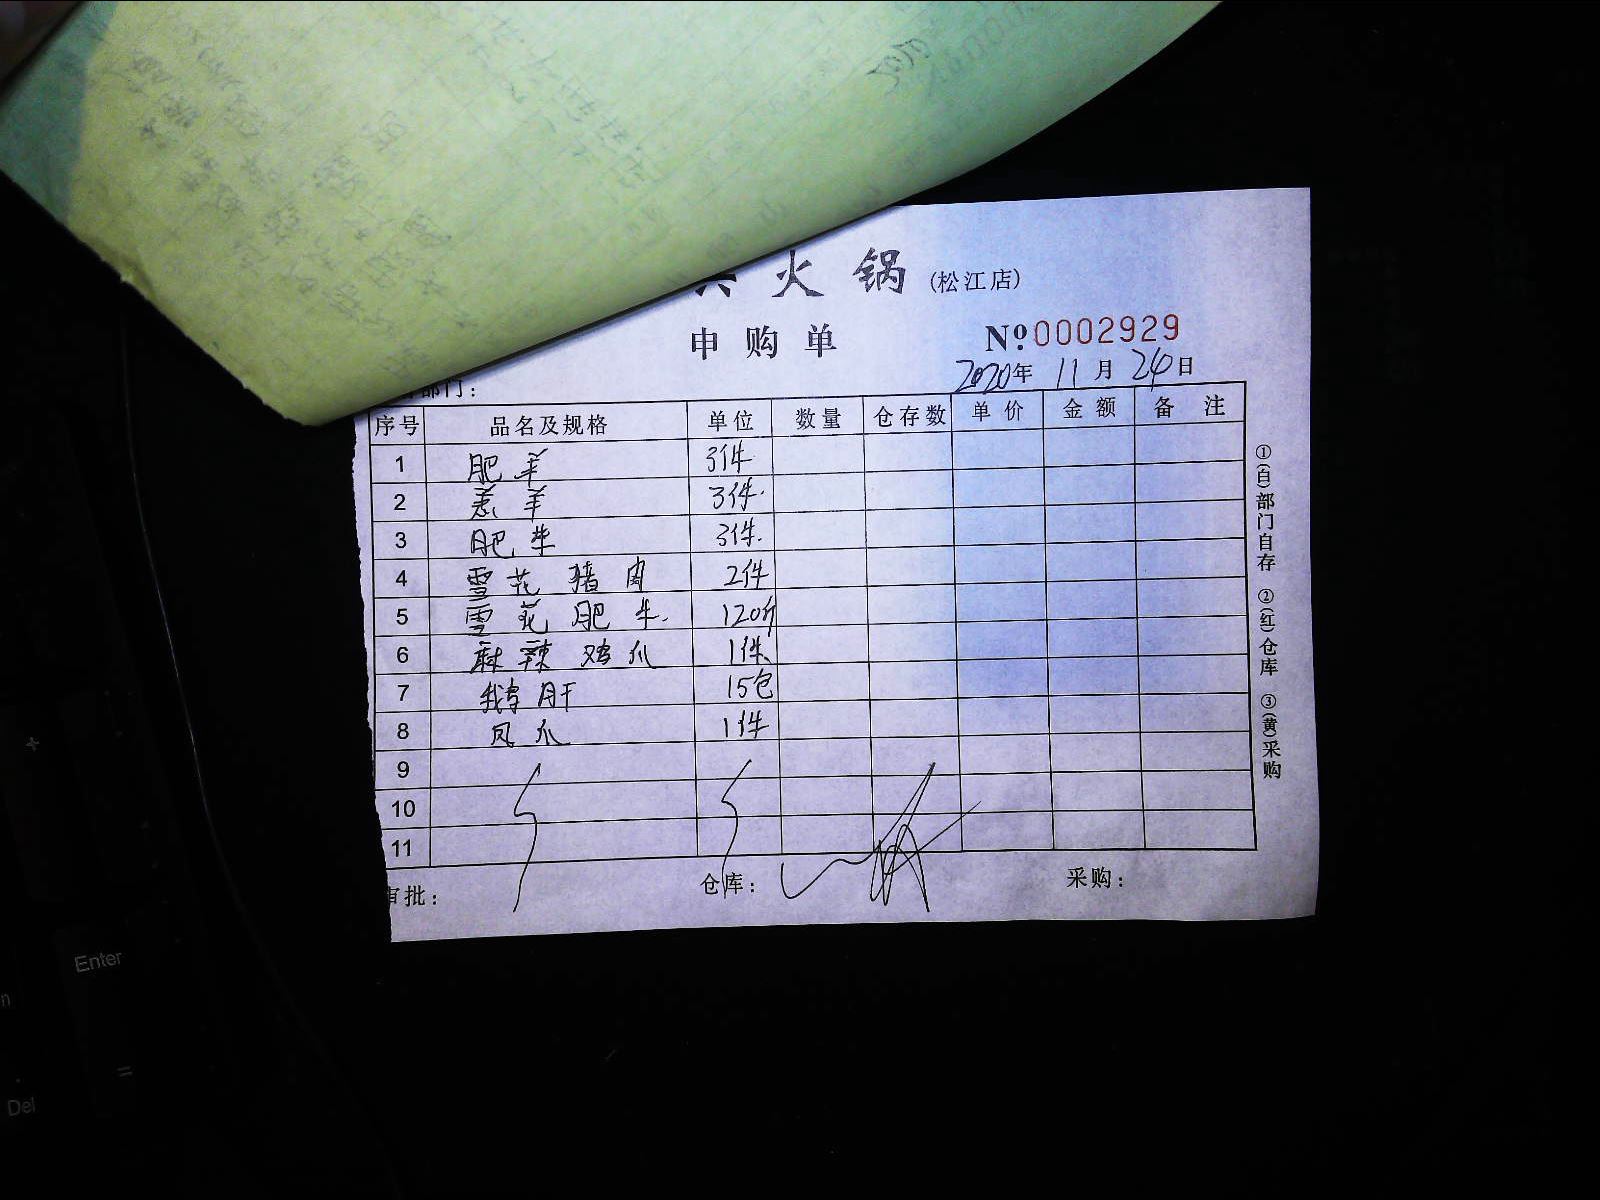 火锅(松江店)
申购单
№0002929
部门:
2020年 11月 24日
序号 品名及规格 单位 数量 仓存数 单价 金额 备注
1 肥羊 3件
2 羔羊 3件.
3 肥牛 3件.
4 雪花猪肉 2件
5 雪花肥牛. 120斤
6 麻辣鸡爪 1件
7 鹅肝 15包
8 凤爪 1件
9
10
11
审批: 仓库: 采购:
①(白)部门自存 ②(红)仓库 ③(黄)采购
Enter
Del